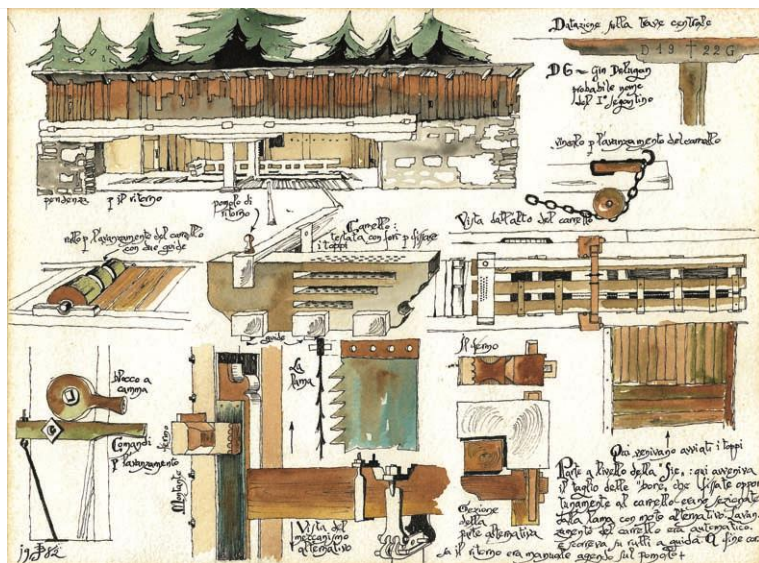 Datazione sulla trave centrale
D 19 † 22 G
DG = Gin Delugan
probabile nome
del I° segantino
vincolo p l'avanzamento del carrello
pendenza p il ritorno
pomolo di
ritorno
Vista dall'alto del carrello
rullo p l'avanzamento del carrello
con due guide
Carrello:
testata con fori p fissare
i toppi
guide
La
lama
Il fermo
blocco a
camma
Comandi
p l'avanzamento
fermo
Montante
Vista del
meccanismo
alternativo
Sezione
della
parte alternativa
Qui venivano avviati i toppi
Parte a livello della "Sie": qui avveniva
il taglio delle "bore, che fissate oppor
tunamente al carrello erano sezionate
dalla lama con moto alternativo. L'avan
zamento del carrello era automatico.
e scorreva su rulli a guida. A fine cor
sa il ritorno era manuale agendo sul pomolo +